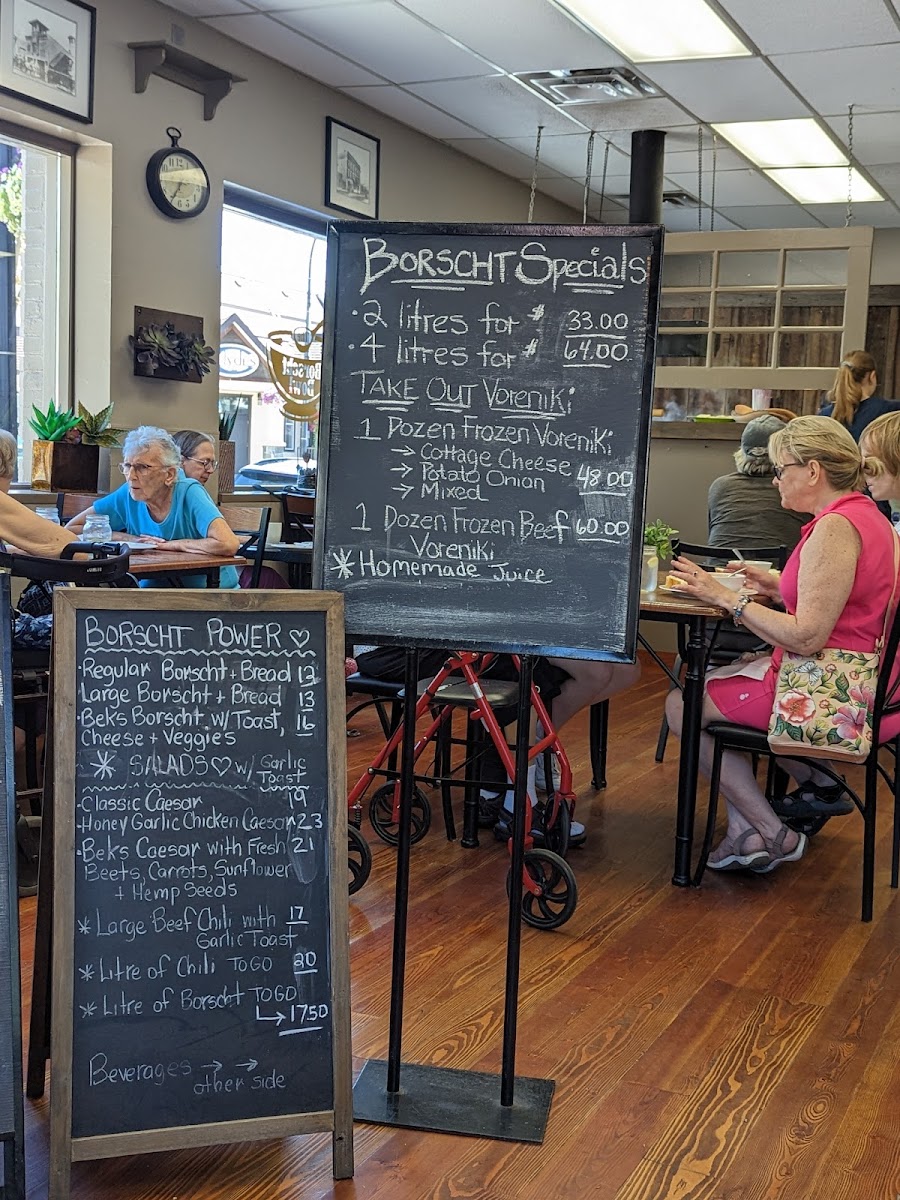 BORSCHT Specials
· 2 litres for $ 33.00
· 4 litres for $ 64.00
TAKE OUT VORENIKI
1 DOZEN FROZEN VORENIKI
→ COTTAGE CHEESE
→ POTATO ONION 48.00
→ MIXED
1 DOZEN FROZEN BEEF 60.00
VORENIKI
* HOMEMADE JUICE
BORSCHT POWER ♡
· Regular Borscht + Bread 12
· Large Borscht + Bread 13
· Beks Borscht w/ Toast, 16
Cheese + Veggies
* SALADS ♡ w/ Garlic
Toast
· Classic Caesar 19
· Honey Garlic Chicken Caesar 23
· Beks Caesar with Fresh 21
Beets, Carrots, Sunflower
+ Hemp Seeds
* Large Beef Chili with 17
Garlic Toast
* Litre of Chili TO GO 20
* Litre of Borscht TO GO
↳ 17.50
Beverages → →
other side
Borscht
Bowl